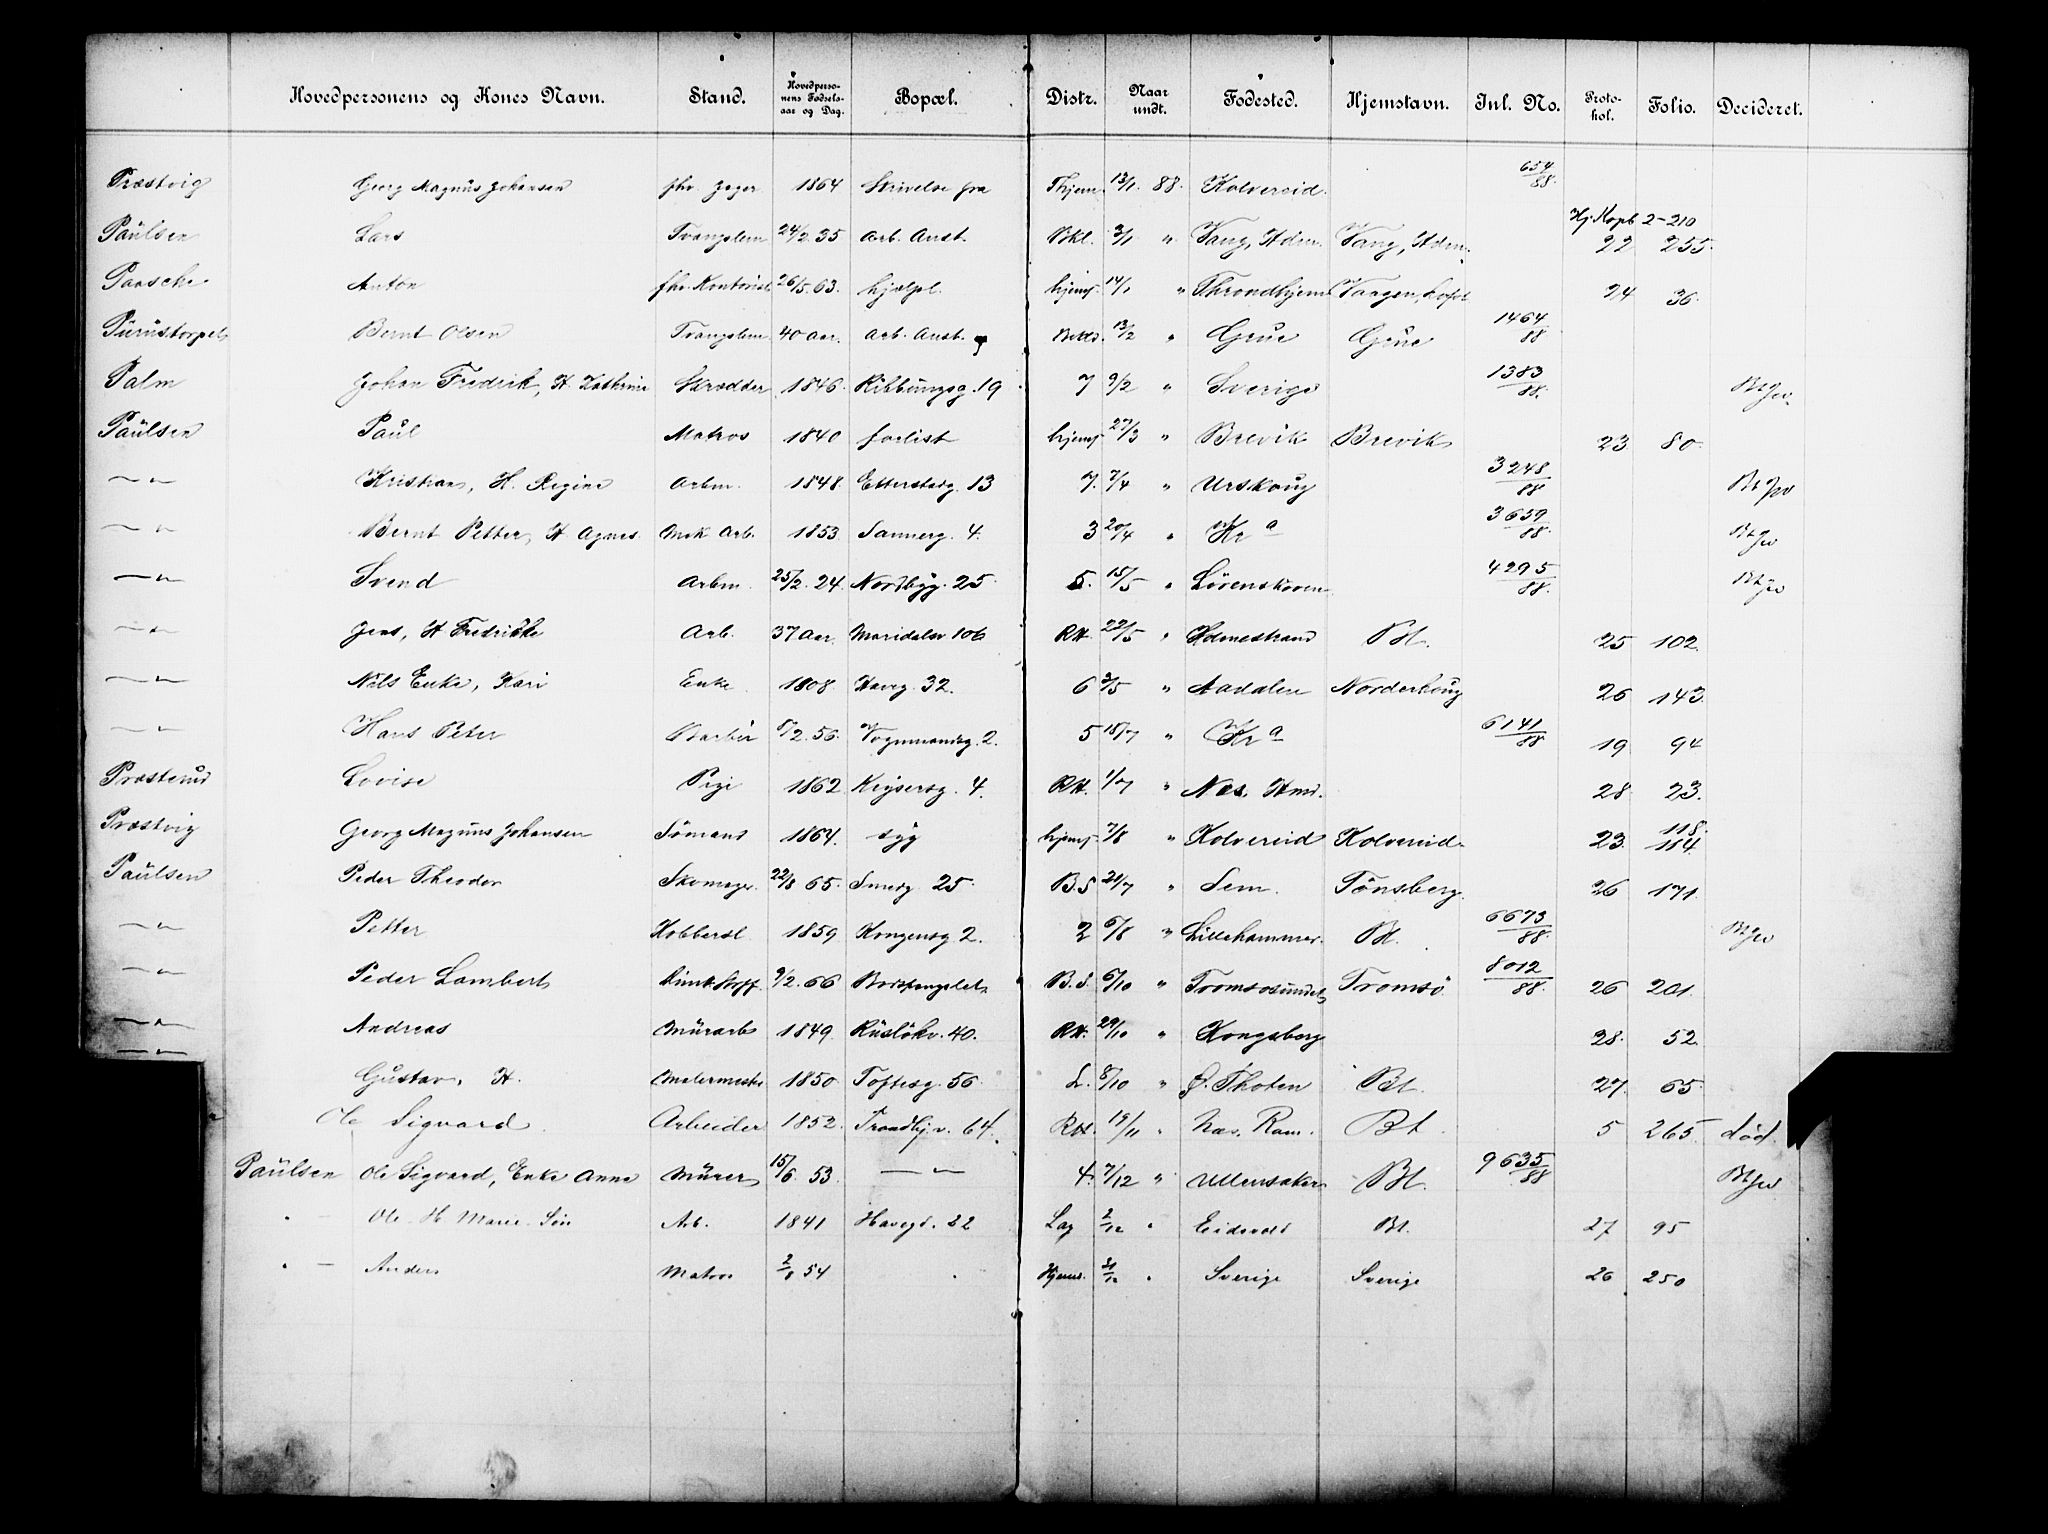 Hovedpersonens og Kones Navn. Stand. Hovedpersonens Fødselsaar og Dag. Bopæl. Distr. Naar undt. Fødested. Hjemstavn. Inl. No. Protokol. Folio. Decideret.
Præstvig Georg Magnus Johansen fhv. Jæger 1864 Skrivelse fra Thjem 13/1 88. Kolvereid. 654/88.
Hj. Kopb 2-210
Paulsen Lars Tvangslem 24/2 35 Arb. Anst. Bkl. 3/1 " Vang, Hdm. Vang, Hdm. 22 255.
Paasche Anton fhv. Kontorist 26/5. 63. hjælpl. hjemf. 14/1 " Throndhjem Vaagen, Lofot 24 36.
Purustorpet Bernt Olsen Tvangslem 40 Aar. Arb. Anst. 13/2 " Grue Grue 1464/88
Palm Johan Fredrik, H. Kathrine Skrædder 1846. Ribbungsg. 19 7 9/2 " Sverige 1383/88.
Paulsen Paul Matros 1840 forlist hjemf. 27/3 " Brevik Brevik 23. 80.
— " — Kristian, H. Regine Arbm. 1848. Etterstadg. 13 7. 7/4 " Urskoug 3248/88
— " — Bernt Petter, H Agnes. Mek Arb. 1853. Sannerg. 4. 3 20/4 " Kra 3659/88.
— " — Svend Arbm. 25/2. 24. Nordbyg. 25. 5. 15/5 " Lørenskoven 4295/88.
— " — Jens, H Fredrikke Arb. 37 Aar. Maridalsv 106 RH. 22/5 " Holmestrand Bt. 25 102.
— " — Nils Enke, Kari Enke 1808. Haveg. 32. 6 3/5 " Aadalen Norderhoug 26 143.
— " — Hans Peter Barbér 8/2. 56. Vognmandsg. 2. 5 18/7 " Kra 6141/88 19 94
Præsterud Lovise Pige 1862 Keysersg. 4. RH. 1/7 " Næs, Hmd. 28 23.
Præstvig Georg Magnus Johansen Sømand 1864. syg hjemf. 7/8 " Kolvereid Kolvereid. 23. 118. 114.
Paulsen Peder Theodor Skomager. 22/8 65. Smedg 25. B.S 21/7 " Sem. Tønsberg. 26 171.
— " — Petter Kobbersl. 1859 Kongensg 2. 2 6/8 " Lillehammer. Bt. 6673/88.
— " — Peder Lambert 9/2. 66 Bodsfængslet. B.S. 6/10 " Tromsøsundet Tromsø 8012/88. 26 201.
— " — Andreas Murarb 1849. Rusløkv. 40. RH. 29/10 " Kongsberg 28. 52.
— " — Gustav, H. Malermester 1850. Toftesg. 56. L. 8/10 " Ø. Thoten Bt 27. 65.
Ole Sigvard. Arbeider 1852. Trondhj.v. 64. RH. 19/11 " Næs, Rom. Bt. 5 265. død.
Paulsen Ole Sigvard, Enke Anna Murer 15/6. 53. — " — 4. 7/12 " Ullensaker Bt. 9635/88
" — Ole H. Marie Arb. 1841 Havegd. 32 Lag 2/12 " Eidsvold Bt. 27 95
" — Anders Matros 2/8 54 Hjems. 21/12 " Sverige Sverige 26 250